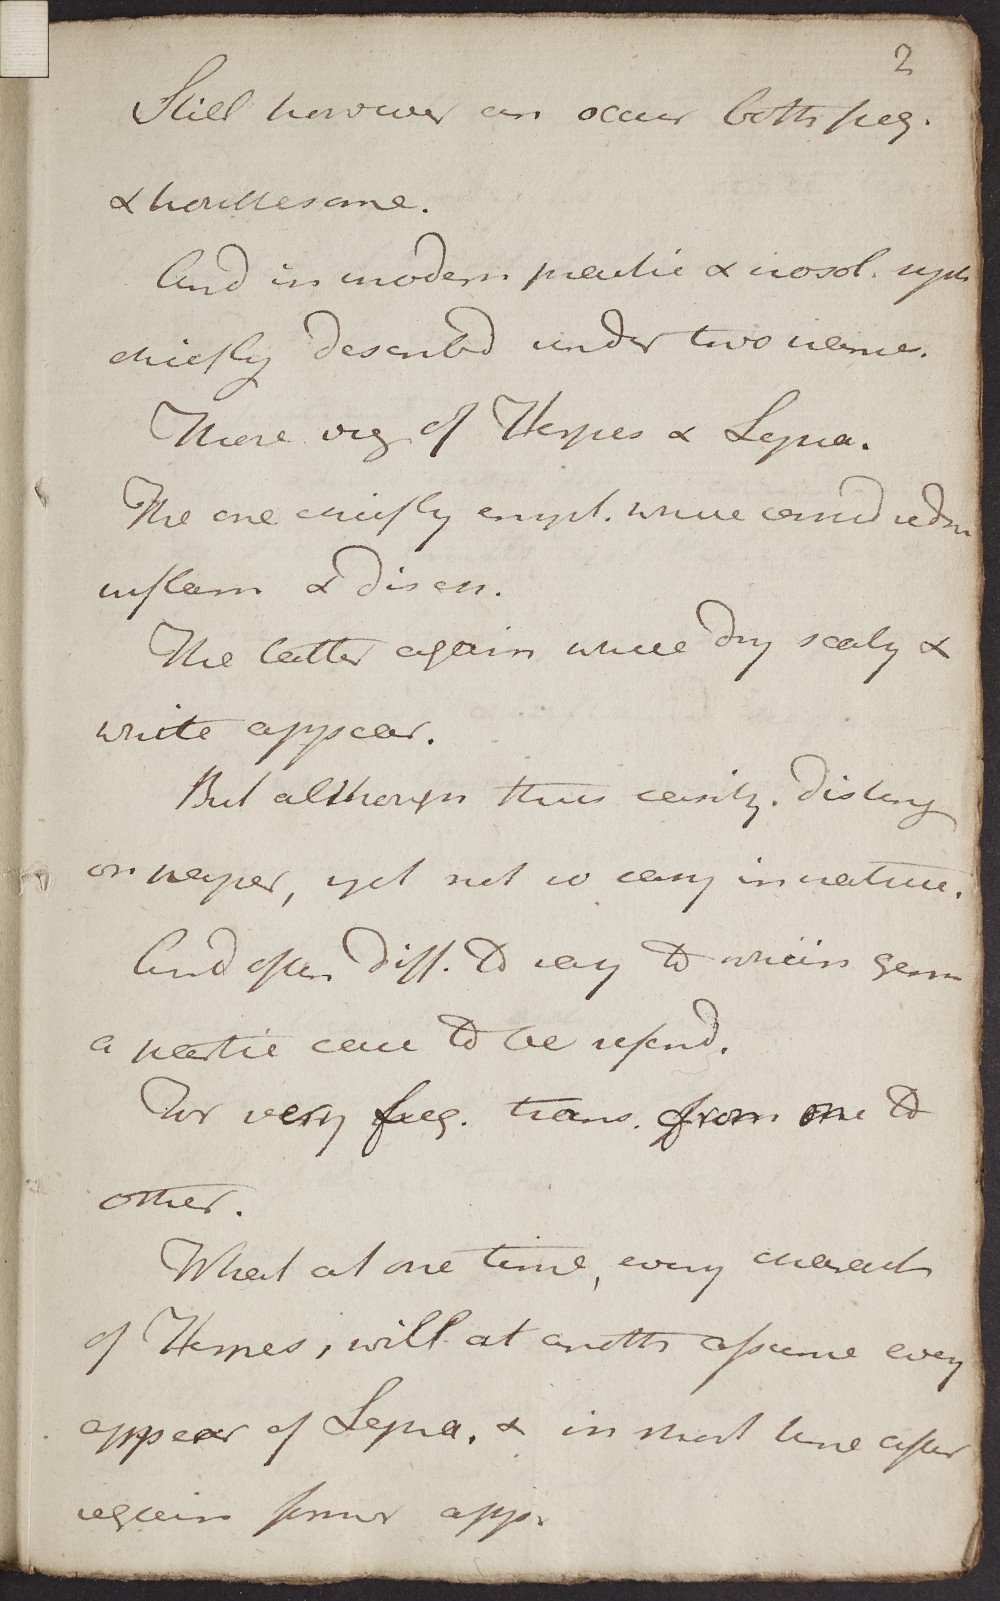 2
Still however an occur both freq.
& troublesome.
And in modern practic & nosol. syst
chiefly described under two names.
Those viz of Herpes & Lepra.
The one chiefly erupt. where consid redn
inflam & dis
The latter again where dry scaly &
white appear.
But although thus easily. disting
on paper, yet not so easy in nature.
And often diff. to say to which genus
a partic case to be refend.
For very freq. trans. from one to
other.
What at one time, every charact
of Herpes, will at anothr assume every
appear of Lepra. & in short time after
regain former app.